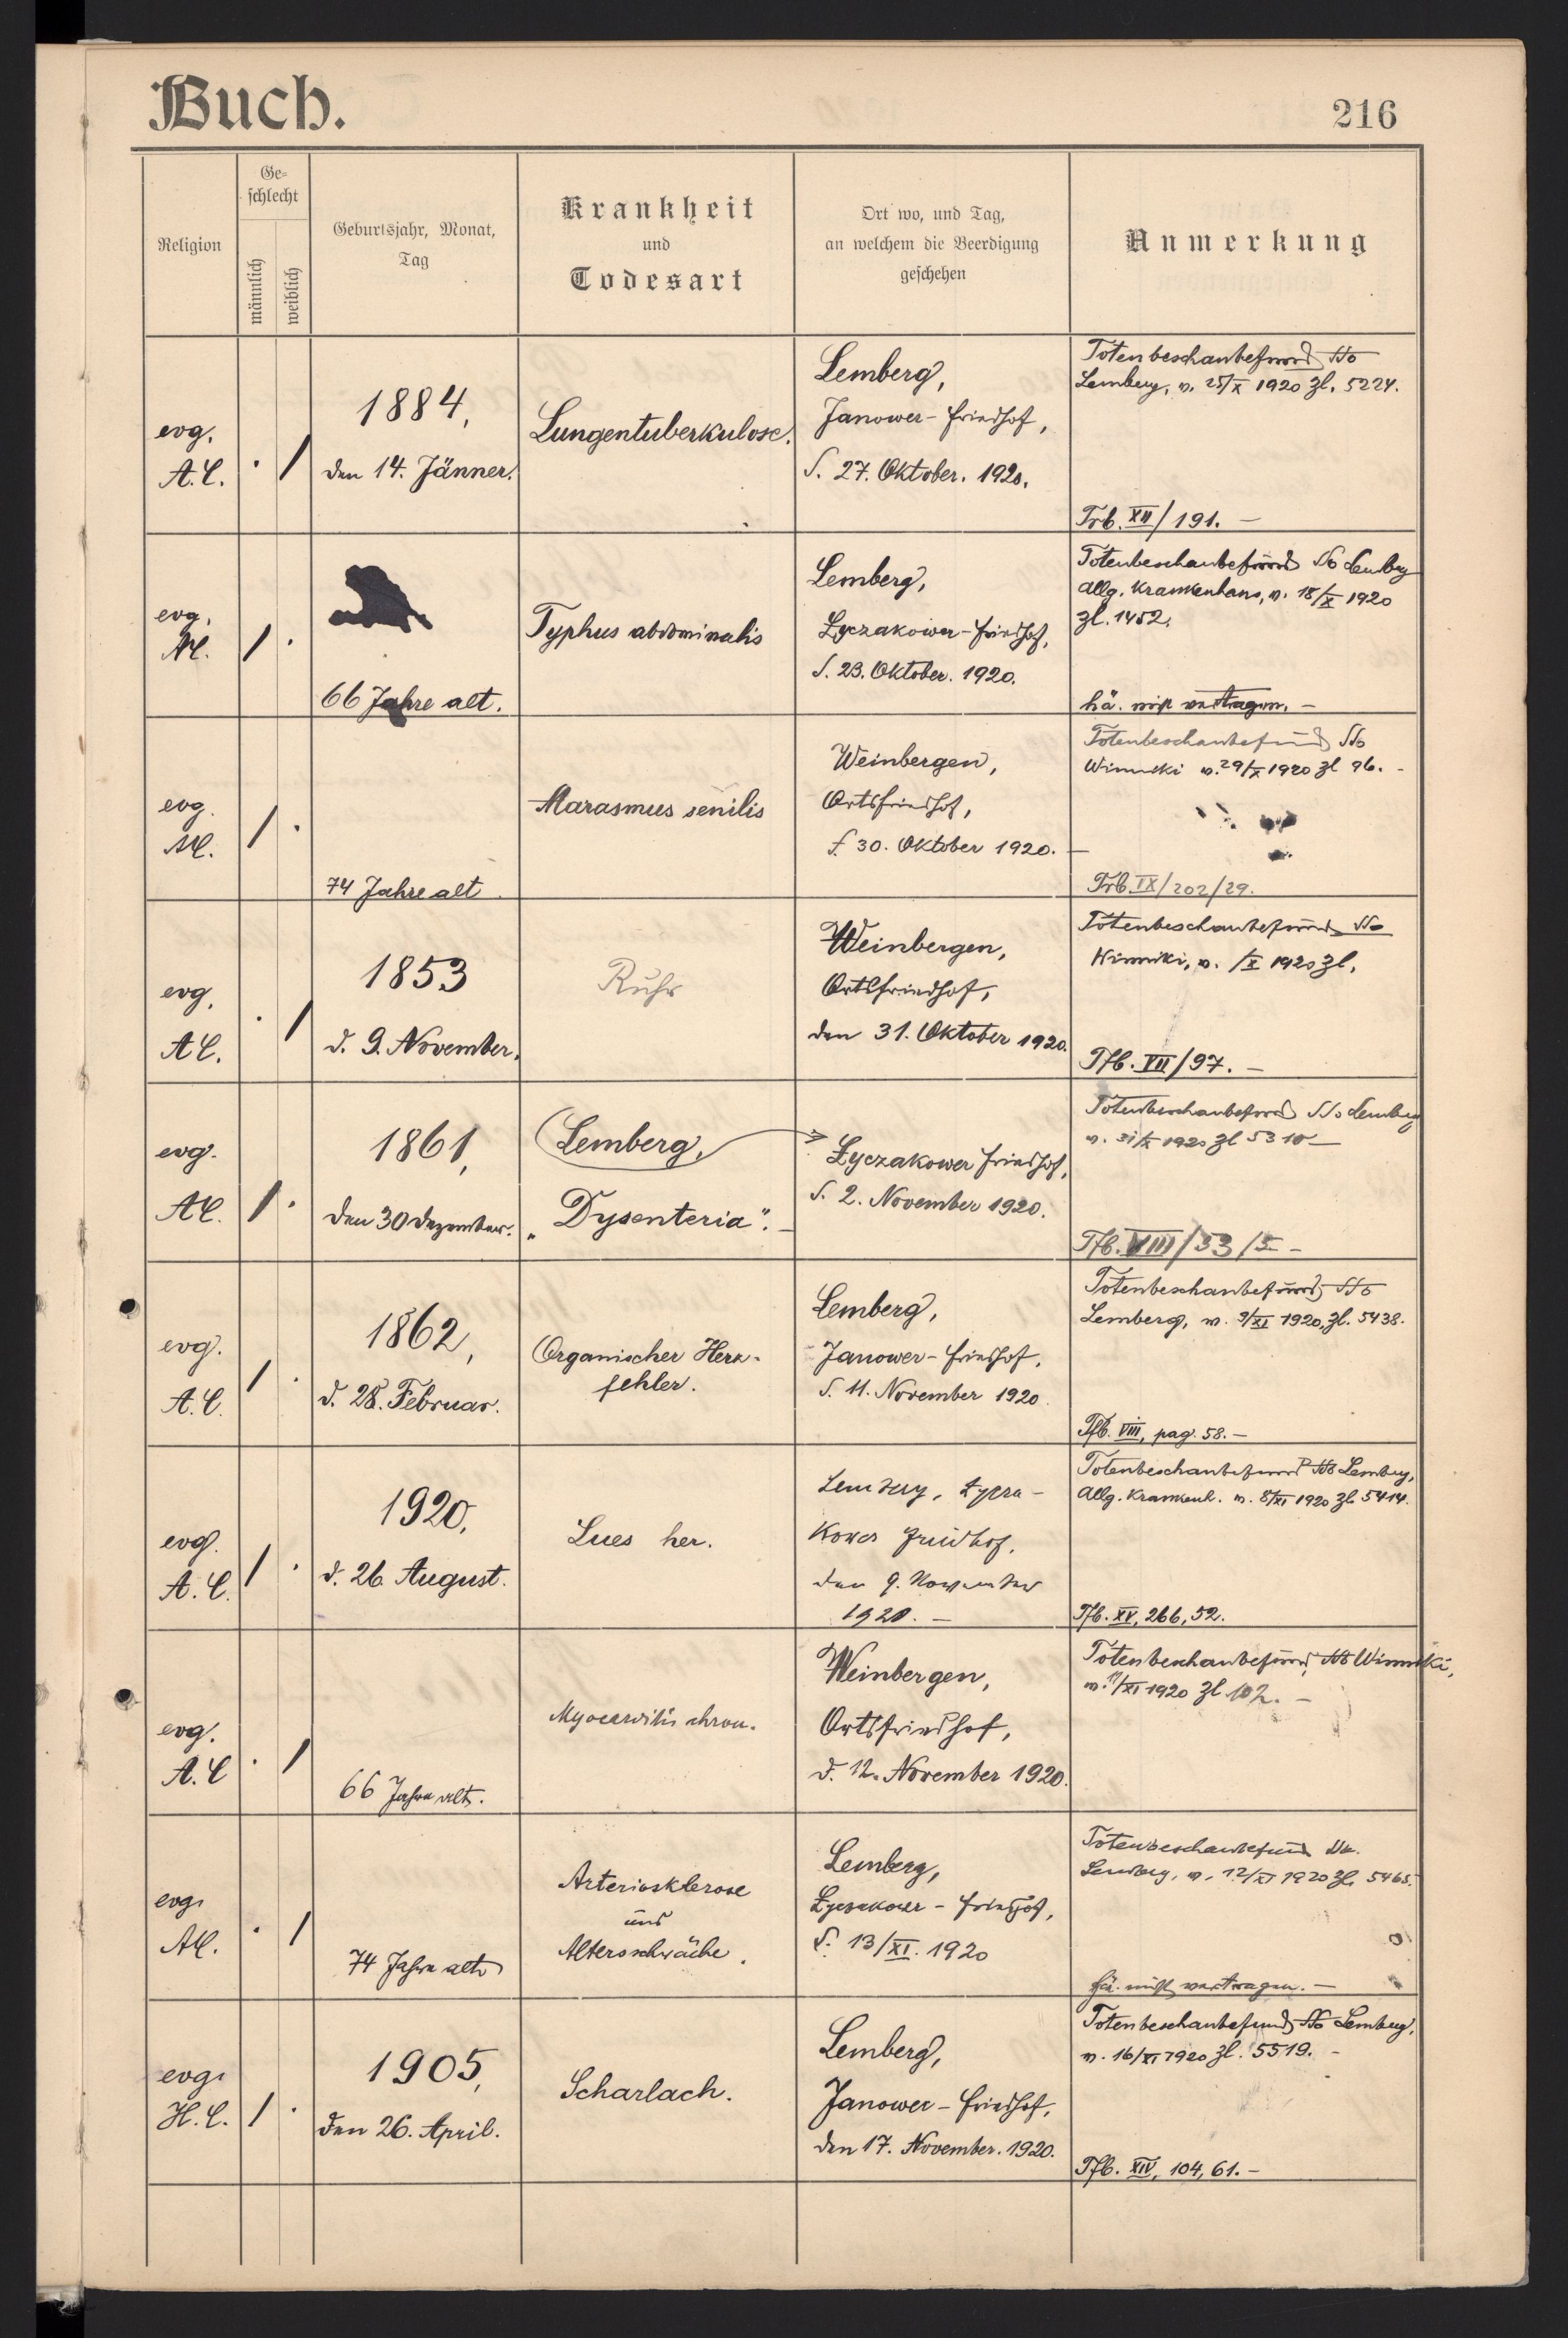 Buch.
216
Religion
Ge-
schlecht
männlich
weiblich
Geburtsjahr, Monat,
Tag
Krankheit
und
Todesart
Ort wo, und Tag,
an welchem die Beerdigung
geschehen
Anmerkung
evg.
A.C.
1884,
den 14. Jänner.
Lungentuberkulose.
Lemberg,
Janower-Friedhof,
d. 27. Oktober. 1920.
Totenbeschaubefund dto
Lemberg, v. 25/X 1920 Zl. 5224.
Trb. XII/191. —
evg.
AC.
66 Jahre alt.
Typhus abdominalis
Lemberg,
Łyczakower-Friedhof,
d. 23. Oktober. 1920.
Totenbeschaubefund dto Lemberg
Allg. Krankenhaus, v. 18/X 1920
Zl. 1452.
hä. nicht vertragen. —
evg.
AC.
74 Jahre alt
Marasmus senilis
Weinbergen,
Ortsfriedhof,
d. 30. Oktober 1920. —
Totenbeschaubefund dto
Winniki v. 29/X 1920 Zl 96. -
Trb IX/202/29.
evg.
AC.
1853
d. 9. November.
Ruhr
Weinbergen,
Ortsfriedhof,
den 31. Oktober 1920.
Totenbeschaubefund dto
Winniki, v. /X 1920 Zl.
Tfb. VII/97. —
evg.
AC.
1861,
den 30 Dezember.
Lemberg,
„Dysenteria“. —
Łyczakower Friedhof,
d. 2. November 1920.
Totenbeschaubefund dto Lemberg
v. 31/X 1920 Zl 5310 —
Tfb. VIII/53/5 —
evg.
A.C.
1862,
d. 28. Februar.
Organischer Herz-
fehler.
Lemberg,
Janower-Friedhof,
d. 11. November 1920.
Totenbeschaubefund dto
Lemberg, v. 9/XI 1920, Zl. 5438.
Tfb. VIII, pag. 58. —
evg.
A.C.
1920,
d. 26. August.
Lues her.
Lemberg, Łycza-
kower Friedhof,
den 9. November
1920. —
Totenbeschaubefund dto Lemberg,
Allg. Krankenh. v. 8/XI 1920 Zl. 5414.
Tfb. XV, 266, 52.
evg.
A.C
66 Jahre alt.
Myocarditis chron.
Weinbergen,
Ortsfriedhof,
d. 12. November 1920.
Totenbeschaubefund dto Winniki,
v. 11/XI 1920 Zl 102. —
evg.
AC.
74 Jahre alt
Arteriosklerose
und
Altersschwäche.
Lemberg,
Łyczakower-Friedhof,
d. 13/XI. 1920
Totenbeschaubefund dto.
Lemberg, v. 12/XI 1920 Zl. 5465.
hä. nicht vertragen. —
evg.
H.C.
1905,
den 26. April.
Scharlach.
Lemberg,
Janower-Friedhof,
den 17. November. 1920.
Totenbeschaubefund dto Lemberg,
v. 16/XI 1920 Zl. 5519. -
Tfb. XIV, 104, 61. —